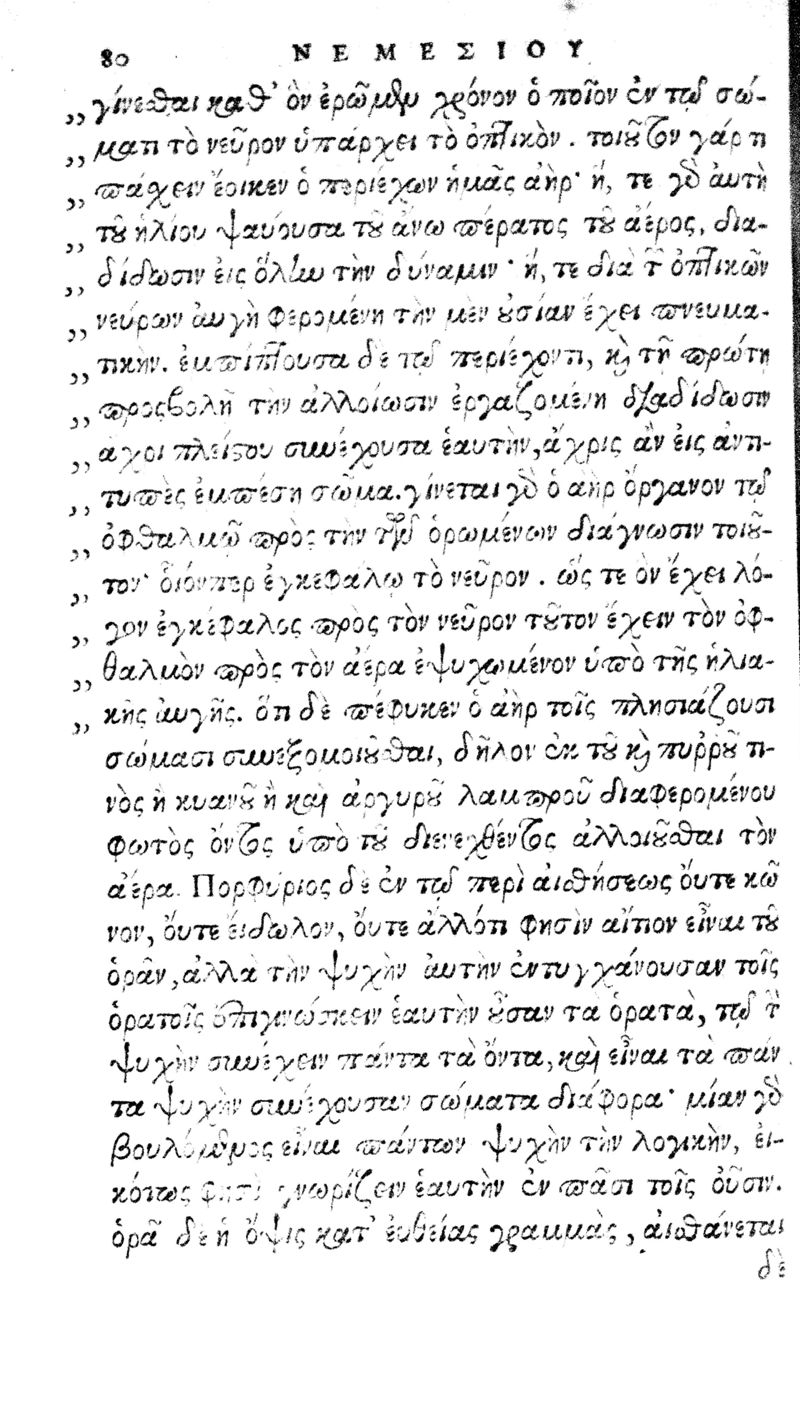 80 ΝΕΜΕΣΙΟΥ
,, γίνεσθαι καθ' ὃν ἐρῶμεν χρόνον ὁποῖον ἐν τῷ σώ-
,, ματι τὸ νεῦρον ὑπάρχει τὸ ὀπτικὸν . τοιοῦτον γάρ τι
,, πάχειν ἔοικεν ὁ περιέχων ἡμᾶς ἀὴρ· ἥ, τε γὰρ ἀυτὴ
,, τοῦ ἡλίου ψαύουσα τοῦ ἄνω πέρατος τοῦ ἀέρος, δια-
,, δίδωσιν ἐις ὅλην τὴν δύναμιν · ἥ, τε διὰ τῶν ὀπτικῶν
,, νεύρων ἀυγὴ φερομένη τὴν μὲν οὐσίαν ἔχει πνευμα-
,, τικὴν. ἐμπίπτουσα δὲ τῷ περιέχοντι, καὶ τῇ πρώτη
,, προςβολῇ τὴν ἀλλοίωσιν ἐργαζομένη διαδίδωσιν
,, ἄχρι πλείστου συνέχουσα ἑαυτὴν, ἄχρις ἂν ἐις ἀντι-
,, τυπὲς ἐμπέση σῶμα. γίνεται γὰρ ὁ αὴρ ὄργανον τῷ
,, ὀφθαλμῷ πρὸς τὴν τῶν ὁρωμένων διάγνωσιν τοιοῦ-
,, τον· ὁιόνπερ ἐγκεφάλῳ τὸ νεῦρον . ὥς τε ὃν ἔχει λό-
,, γον ἐγκέφαλος πρὸς τὸν νεῦρον τοῦτον ἔχειν τὸν ὀφ-
,, θαλμὸν πρὸς τὸν ἀέρα ἐψυχωμένον ὑπὸ τῆς ἡλια-
,, κῆς ἀυγῆς. ὅτι δὲ πέφυκεν ὁ ἀὴρ τοῖς πλησιάζουσι
σώμασι συνεξομοιοῦσθαι, δῆλον ἐκ τοῦ καὶ πυῤῥοῦ τι-
νὸς ἢ κυανοῦ ἢ καὶ ἀργυροῦ λαμπροῦ διαφερομένου
φωτὸς ὄντος ὑπὸ τοῦ διενεχθέντος ἀλλοιοῦσθαι τὸν
ἀέρα. Πορφύριος δὲ ἐν τῷ περὶ αἰσθήσεως ὄυτε κῶ
νον, ὄυτε ἔιδωλον, ὄυτε ἀλλότι φησὶν αἴτιον εἶναι τοῦ
ὁρᾶν, ἀλλὰ τὴν ψυχὴν ἀυτὴν ἐντυγχάνουσαν τοῖς
ὁρατοῖς ἐπιγινώσκειν ἑαυτὴν οὖσαν τὰ ὁρατὰ, τῷ τὴν
ψυχὴν συνέχειν πάντα τὰ ὄντα, καὶ εἶναι τὰ πάν
τα ψυχὴν συνέχουσαν σώματα διάφορα· μίαν γὰρ
βουλόμενος εἶναι πάντων ψυχὴν τὴν λογικὴν, ἐι-
κότως φησὶ γνωρίζειν ἑαυτὴν ἐν πᾶσι τοῖς οὖσιν.
ὁρᾶ δὲ ἡ ὄψις κατ' ἐυθείας γραμμὰς, ἀισθάνεται
δὲ